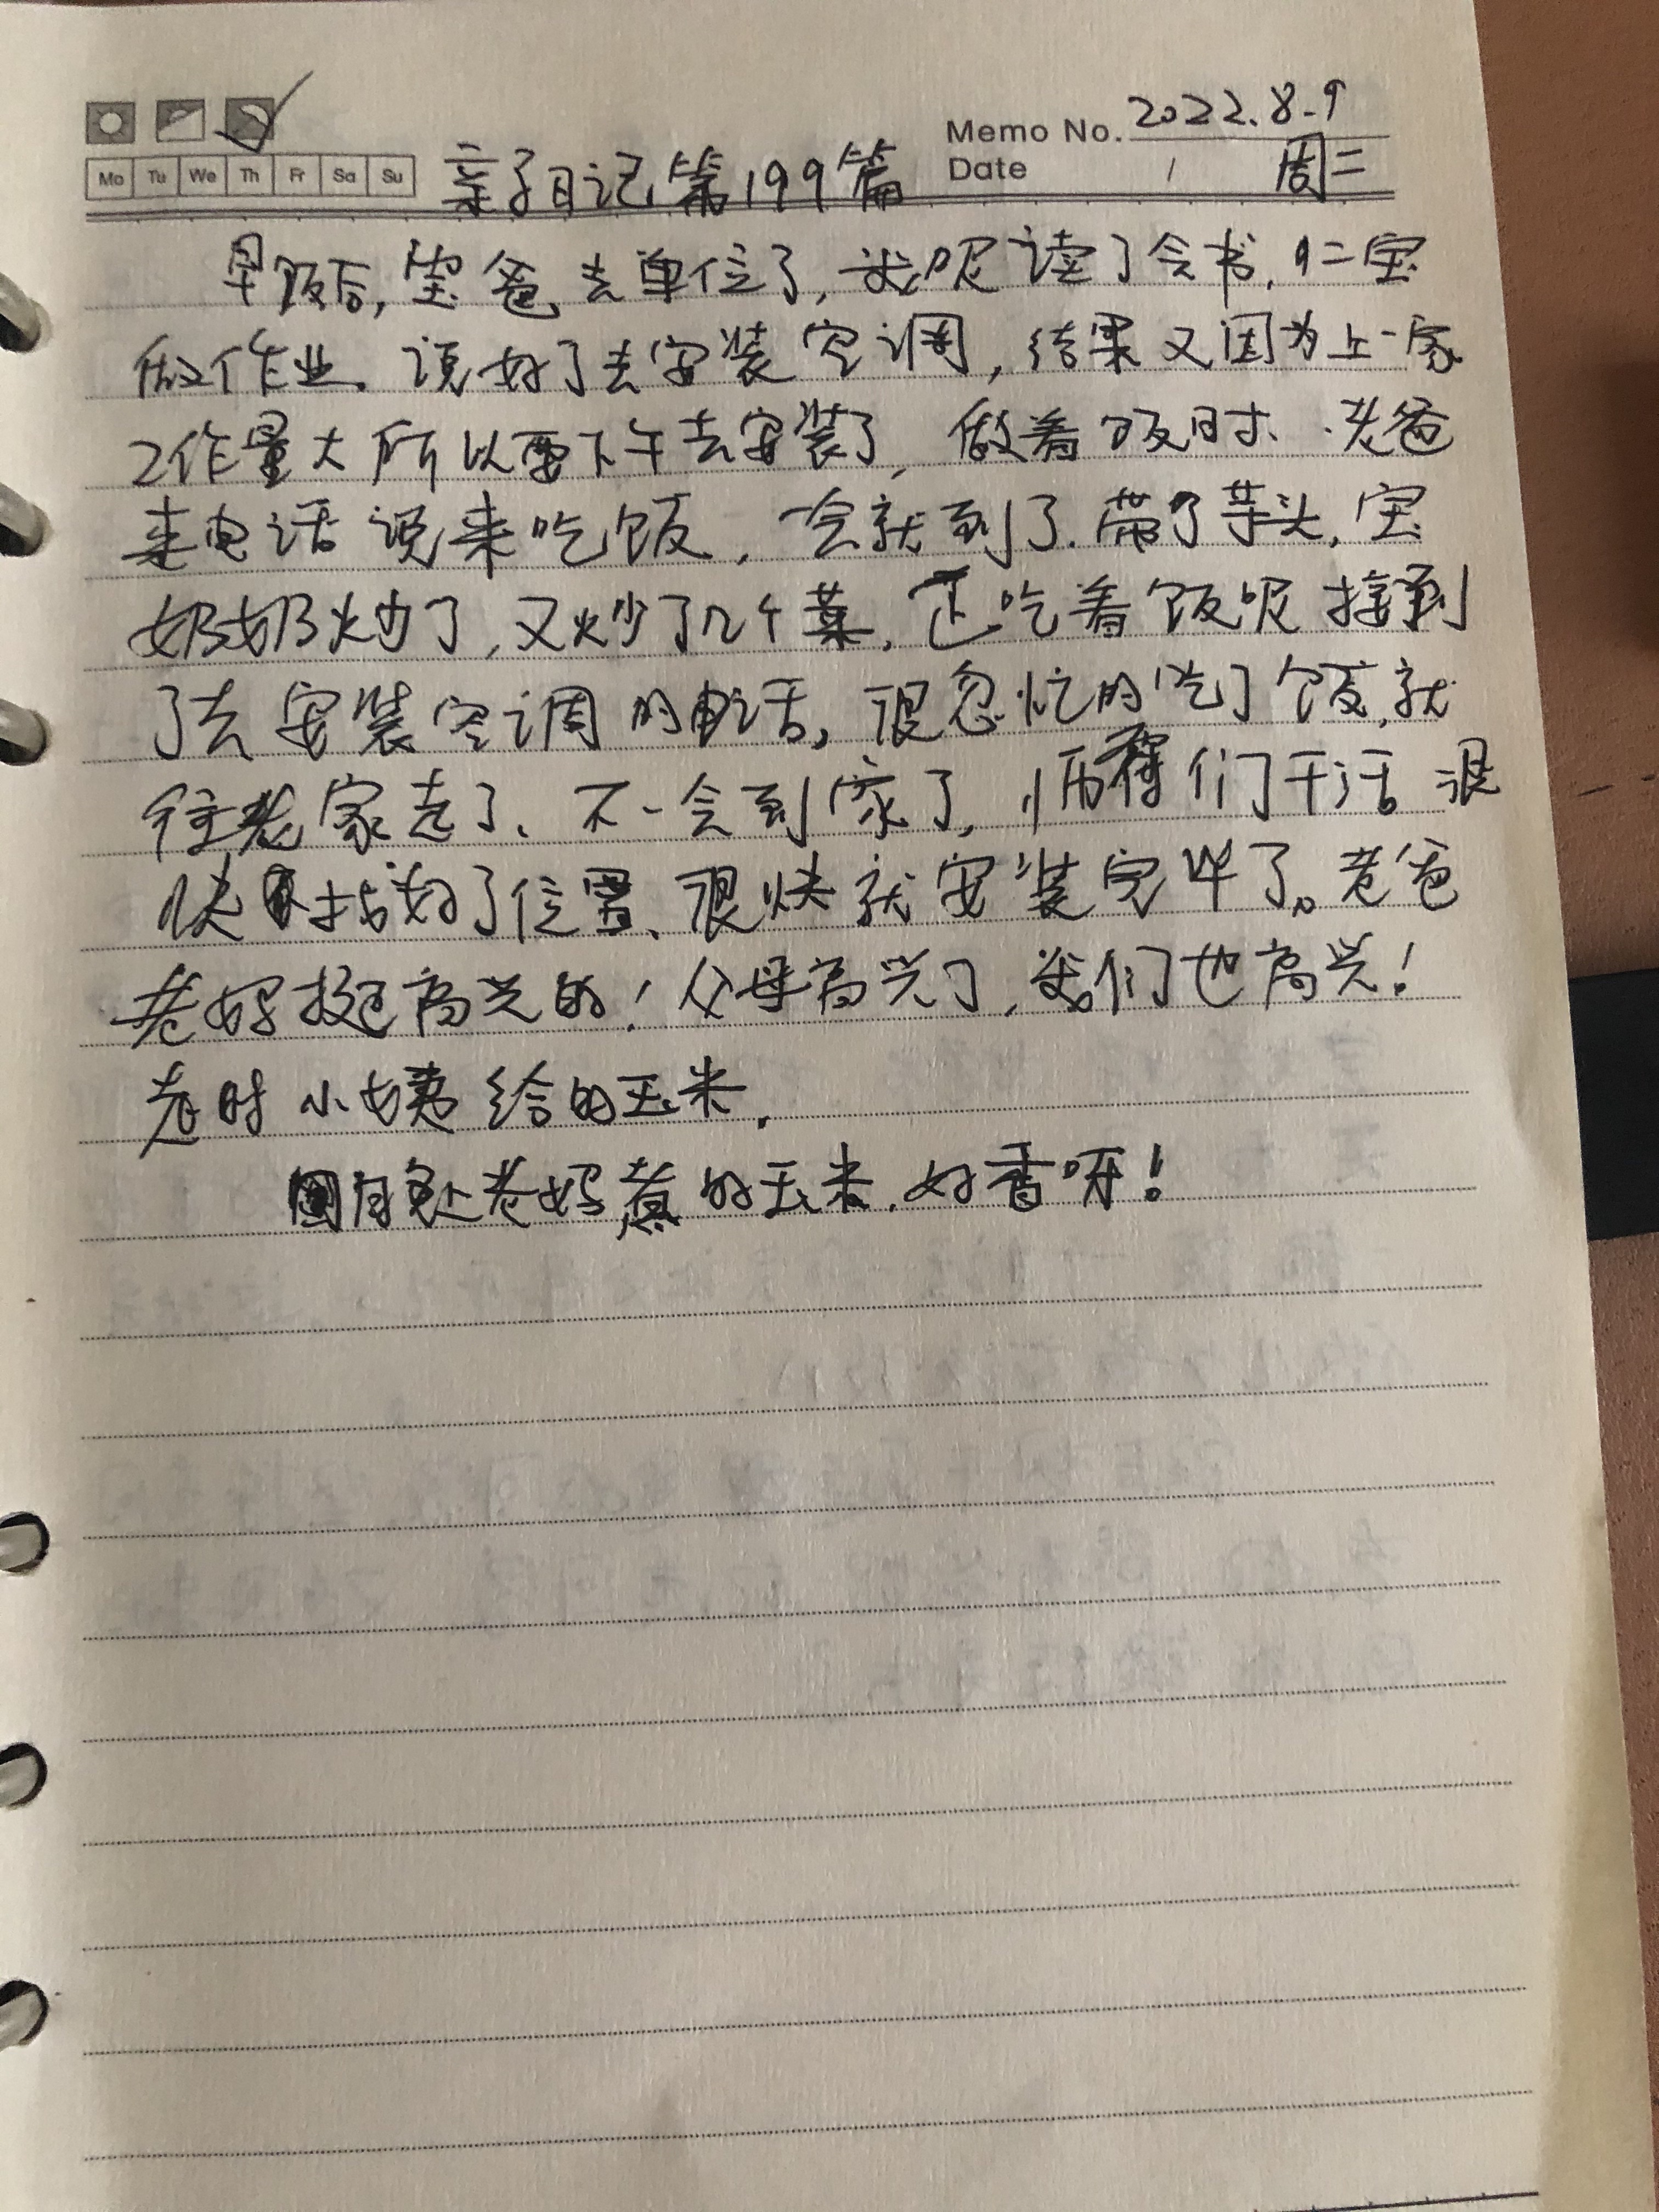 Memo No. 2022.8.9
Mo Tu We Th Fr Sa Su
Date / 周二
亲子日记第199篇
早饭后,宝爸去单位了,我呢读了会书,二宝
做作业。说好了去安装空调,结果又因为上一家
工作量大所以要下午去安装了,做着饭时、老爸
来电话说来吃饭,一会就到了.带了芋头,宝
奶奶炒了,又炒了几个菜,正吃着饭呢接到
了去安装空调的电话,很忽忙的吃了饭,就
往老家走了、不一会到家了,师傅们干活很
快 找好了位置、很快就安装完毕了。老爸
老妈挺高兴的!父母高兴了,我们也高兴!
走时小姨给的玉米.
老妈煮的玉米.好香呀!